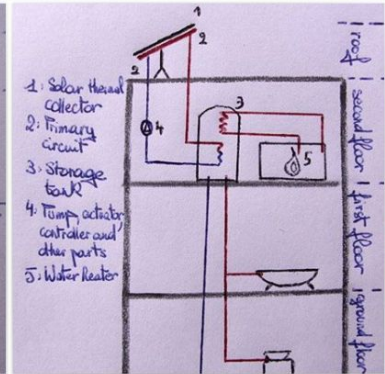 1
2
2
3
4
5
1: Solar thermal
collector
2: Primary
circuit
3: Storage
tank
4: Pump, actuator,
controller and
other parts
5: Water Heater
roof
second floor
first floor
ground floor